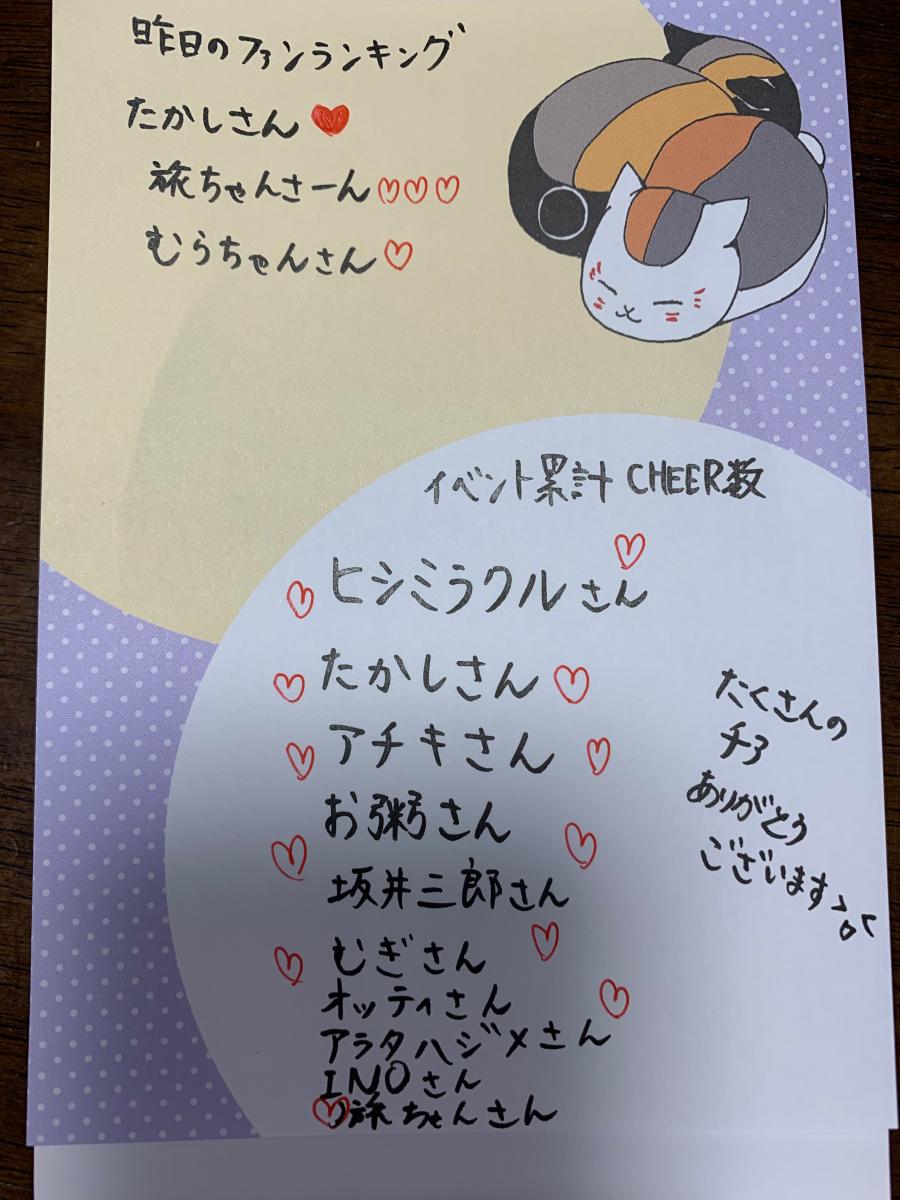 昨日のファンランキング
たかしさん
旅ちゃんさーん
むらちゃんさん
イベント累計 CHEER数
ヒシミラクルさん
たかしさん
アチキさん
お粥さん
坂井三郎さん
むぎさん
オッティさん
アラタハジメさん
INOさん
旅ちゃんさん
たくさんの
チア
ありがとう
ございます